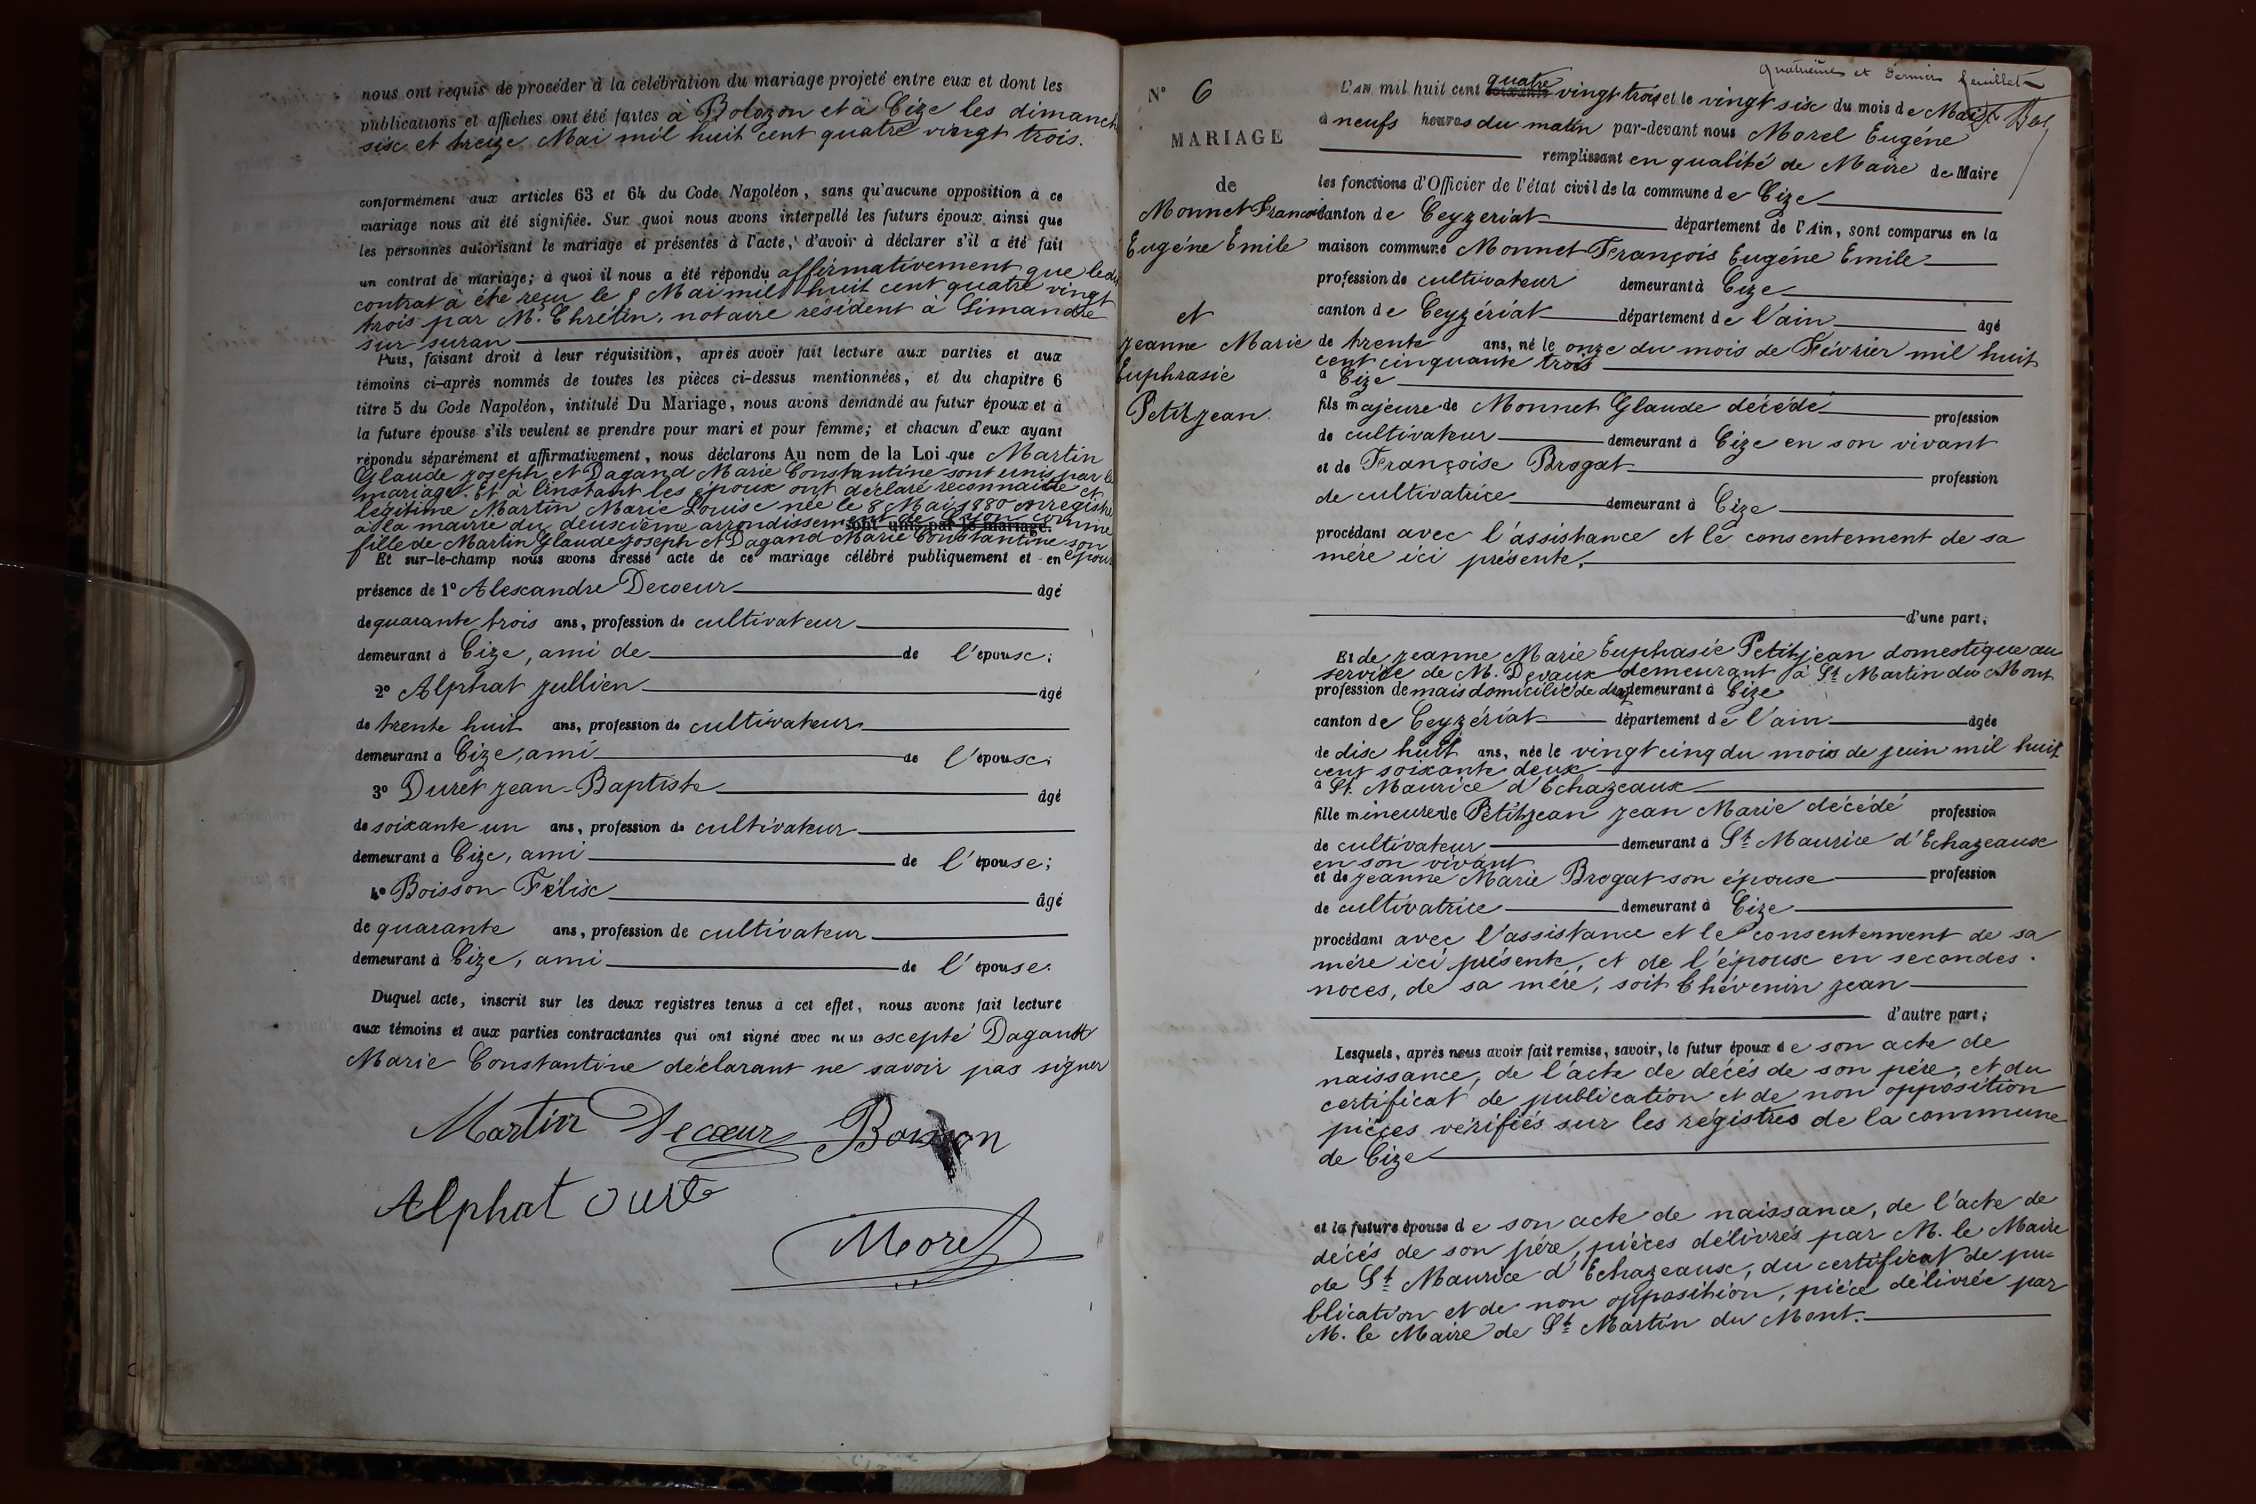 nous ont requis de procéder à la célébration du mariage projeté entre eux et dont les
publications et affiches ont été faites à Bolozon et à Cize les dimanch
six et treize Mai mil huit cent quatre vingt trois.
conformément aux articles 63 et 64 du Code Napoléon, sans qu'aucune opposition à ce
mariage nous ait été signifiée. Sur quoi nous avons interpellé les futurs époux ainsi que
les personnes autorisant le mariage et présentes à l'acte, d'avoir à déclarer s'il a été fait
un contrat de mariage; à quoi il nous a été répondu affirmativement que ledit
contrat à été reçu le 8 Mai mil huit cent quatre vingt
trois par M. Chrétin, notaire résident à Simandre
sur suran
Puis, faisant droit à leur réquisition, après avoir fait lecture aux parties et aux
témoins ci-après nommés de toutes les pièces ci-dessus mentionnées, et du chapitre 6
titre 5 du Code Napoléon, intitulé Du Mariage, nous avons demandé au futur époux et à
la future épouse s'ils veulent se prendre pour mari et pour femme; et chacun d'eux ayant
répondu séparément et affirmativement, nous déclarons Au nom de la Loi que Martin
Glaude Joseph et Dagand Marie Constantine sont unis par le
mariage. Et à l'instant les époux ont déclaré reconnaitre et
légitime Martin Marie Louise née le 8 Mai 1880 enregistré
à la mairie du deuxième arrondissement de Lyon comme
sont unis par le mariage.
fille de Martin Glaude Joseph et Dagand Marie Constantine son épouse
Et sur-le-champ nous avons dressé acte de ce mariage célébré publiquement et en
présence de 1º Alexandre Decoeur âgé
de quarante trois ans, profession de cultivateur
demeurant à Cize, ami de de l'épouse;
2º Alphat Jullien âgé
de trente huit ans, profession de cultivateur
demeurant à Cize, ami de l'épouse;
3º Duret Jean-Baptiste âgé
de soixante un ans, profession de cultivateur
demeurant à Cize, ami de l'épouse;
4º Boisson Félix âgé
de quarante ans, profession de cultivateur
demeurant à Cize, ami de l'épouse.
Duquel acte, inscrit sur les deux registres tenus à cet effet, nous avons fait lecture
aux témoins et aux parties contractantes qui ont signé avec nous excepté Dagand
Marie Constantine déclarant ne savoir pas signer
Martin Decœur Boisson
Alphat Duret
Morel
Quatrième et dernier feuillet
Nº 6
MARIAGE
de
Monnet François
Eugéne Emile
et
Jeanne Marie
Euphrasie
Petitjean.
L'AN mil huit cent soixante quatre vingt trois et le vingt six du mois de Mai
à neufs heures du matin par-devant nous Morel Eugéne
remplissant en qualité de Maire de Maire
les fonctions d'Officier de l'état civil de la commune de Cize
canton de Ceyzeriat département de l'Ain, sont comparus en la
maison commune Monnet François Eugéne Emile
profession de cultivateur demeurant à Cize
canton de Ceyzériat département de l'ain âgé
de trente ans, né le onze du mois de Février mil huit
cent cinquante trois
à Cize
fils majeure de Monnet Glaude décédé profession
de cultivateur demeurant à Cize en son vivant
et de Françoise Brogat profession
de cultivatrice demeurant à Cize
procédant avec l'assistance et le consentement de sa
mére ici présente.
d'une part;
Et de Jeanne Marie Euphasie Petitjean domestique au
service de M. Devaux demeurant à St Martin du Mont
profession de mais domicilié de droit demeurant à Cize
canton de Ceyzériat département de l'ain âgée
de dix huit ans, née le vingt cinq du mois de juin mil huit
cent soixante deux
à St. Maurice d'Echazeaux
fille mineure de Petitjean Jean Marie décédé profession
de cultivateur demeurant à St Maurice d'Echazeaux
en son vivant
et de Jeanne Marie Brogat son épouse profession
de cultivatrice demeurant à Cize
procédant avec l'assistance et le consentement de sa
mére ici présente, et de l'époux en secondes
noces, de sa mére, soit Chévenin Jean
d'autre part;
Lesquels, après nous avoir fait remise, savoir, le futur époux de son acte de
naissance, de l'acte de décés de son pére, et du
certificat de publication et de non opposition
pièces vérifiés sur les régistres de la commune
de Cize
et la future épouse de son acte de naissance, de l'acte de
décés de son pére, pièces délivrés par M. le Maire
de St Maurice d'Echazeaux, du certificat de pu-
blication et de non opposition, pièce délivrée par
M. le Maire de St Martin du Mont.